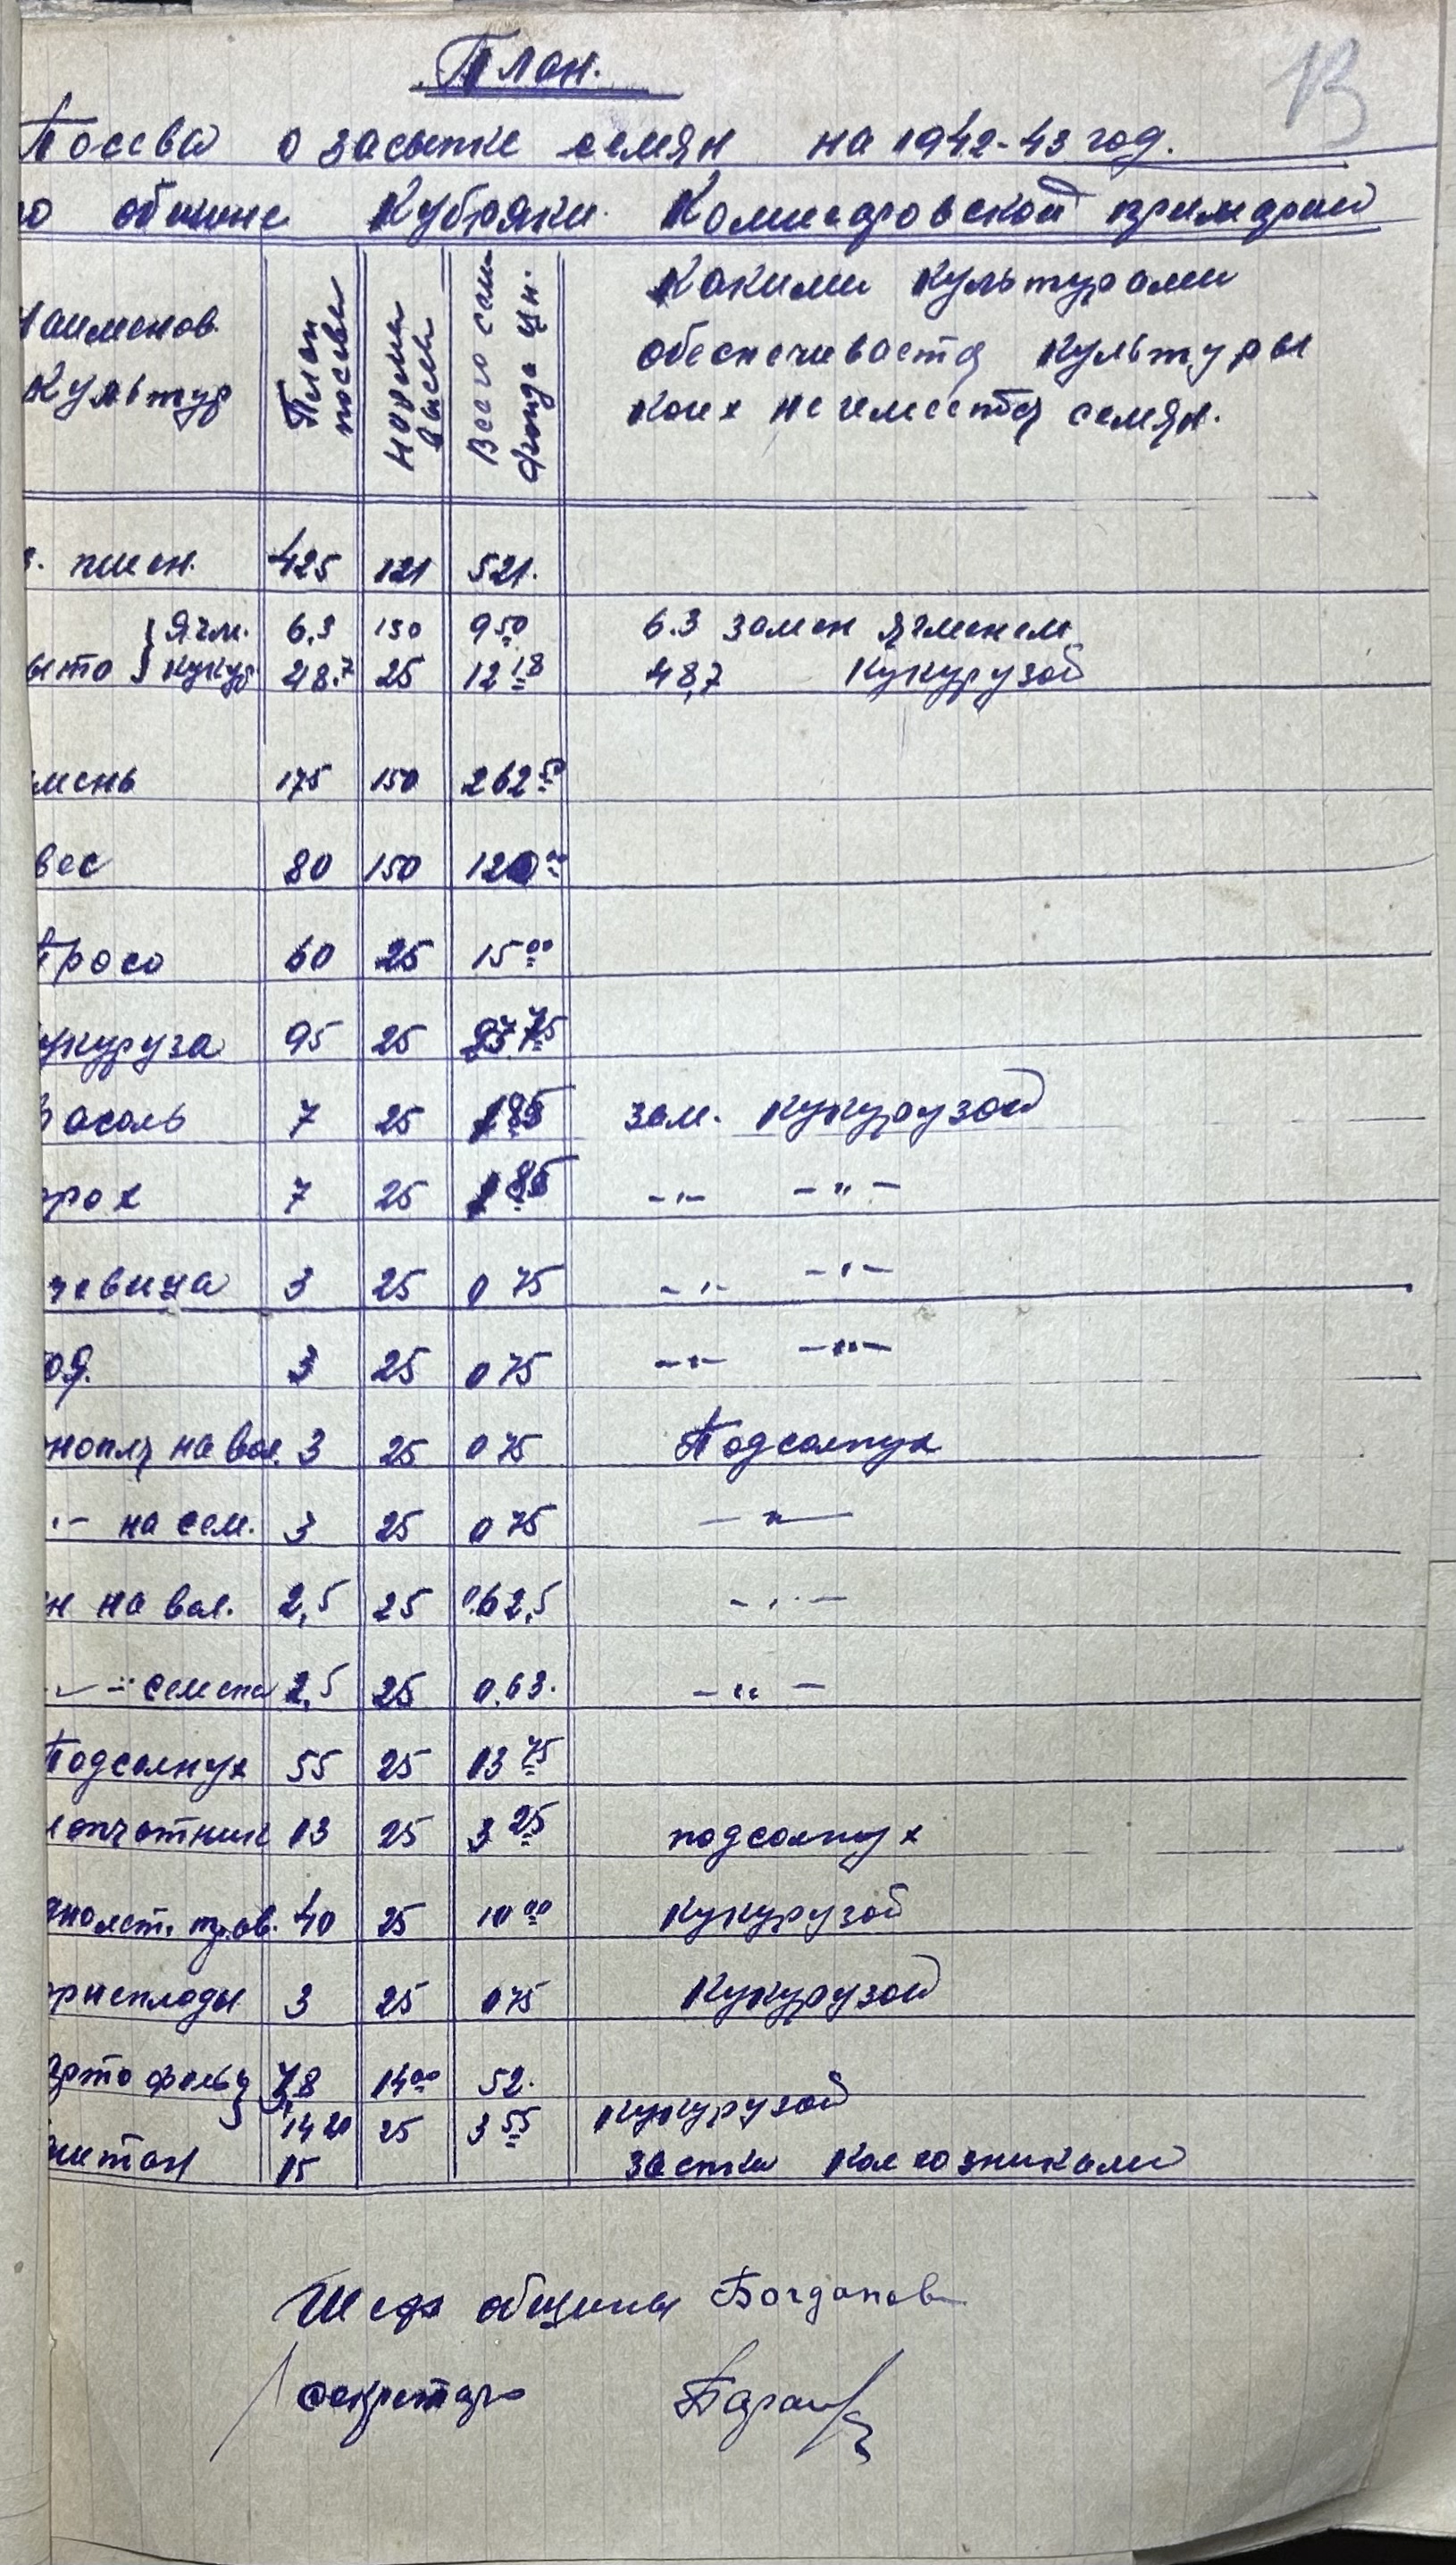 План.
13
Посева о засыпке семян на 1942-43 год.
по общине Кубряки Комисаровской примарии
Наименов. Культур
План посева
Норма высева
Всего сем. фонда цн.
Какими культурами
обеспечивается культуры
коих не имеется семян.
з. пшен. 425 121 521.
ячм. 6,3 150 9 50 6.3 замен ячменем
ыто кукур 48.7 25 12 18 48,7 кукурузой
мень 175 150 262 50
вес 80 150 120 00
Просо 60 25 15 00
укуруза 95 25 23 75
асоль 7 25 1 85 зам. кукурузой
рох 7 25 1 85 -"- -"-
чевица 3 25 0 75 -"- -"-
оя. 3 25 0 75 -"- -"-
нопля на вол. 3 25 0 75 Подсолнух
-"- на сем. 3 25 0 75 -"-
н на вол. 2,5 25 0.62,5 -"-
-"- семена 2,5 25 0.63. -"-
Подсолнух 55 25 13 75
лопчатник 13 25 3 25 подсолнух
нолет. трав. 40 25 10 00 Кукурузой
рнеплоды 3 25 0 75 Кукурузой
артофель 18 14 00 52.
14 20 25 3 55 кукурузой
15 колхозниками
Шеф общины Богданов
Секретарь